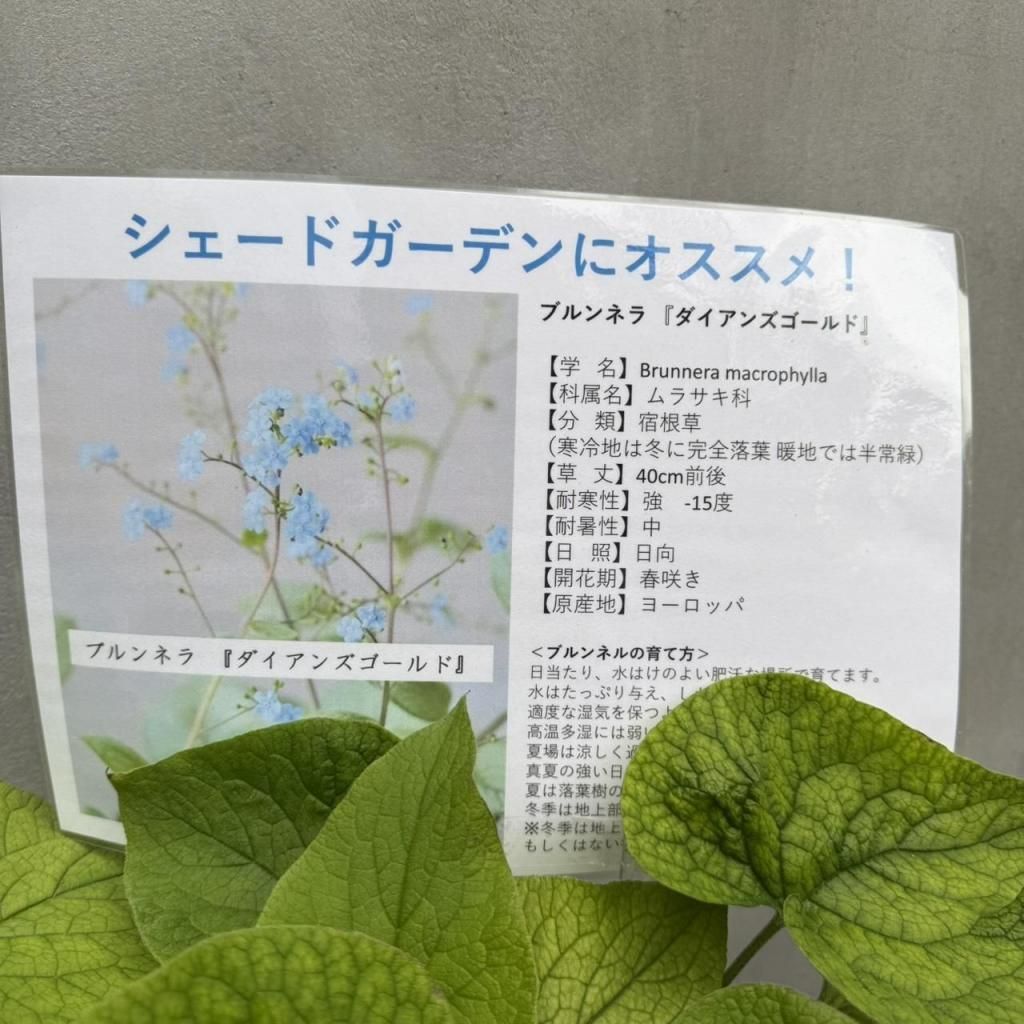 シェードガーデンにオススメ！
ブルンネラ『ダイアンズゴールド』
【学　名】Brunnera macrophylla
【科属名】ムラサキ科
【分　類】宿根草
（寒冷地は冬に完全落葉 暖地では半常緑）
【草　丈】40cm前後
【耐寒性】強　-15度
【耐暑性】中
【日　照】日向
【開花期】春咲き
【原産地】ヨーロッパ
ブルンネラ 『ダイアンズゴールド』
＜ブルンネルの育て方＞
日当たり、水はけのよい肥沃な場所で育てます。
水はたっぷり与え、し
適度な湿気を保つ
高温多湿には弱い
夏場は涼しく過
真夏の強い日
夏は落葉樹の
冬季は地上部
※冬季は地上
もしくはない